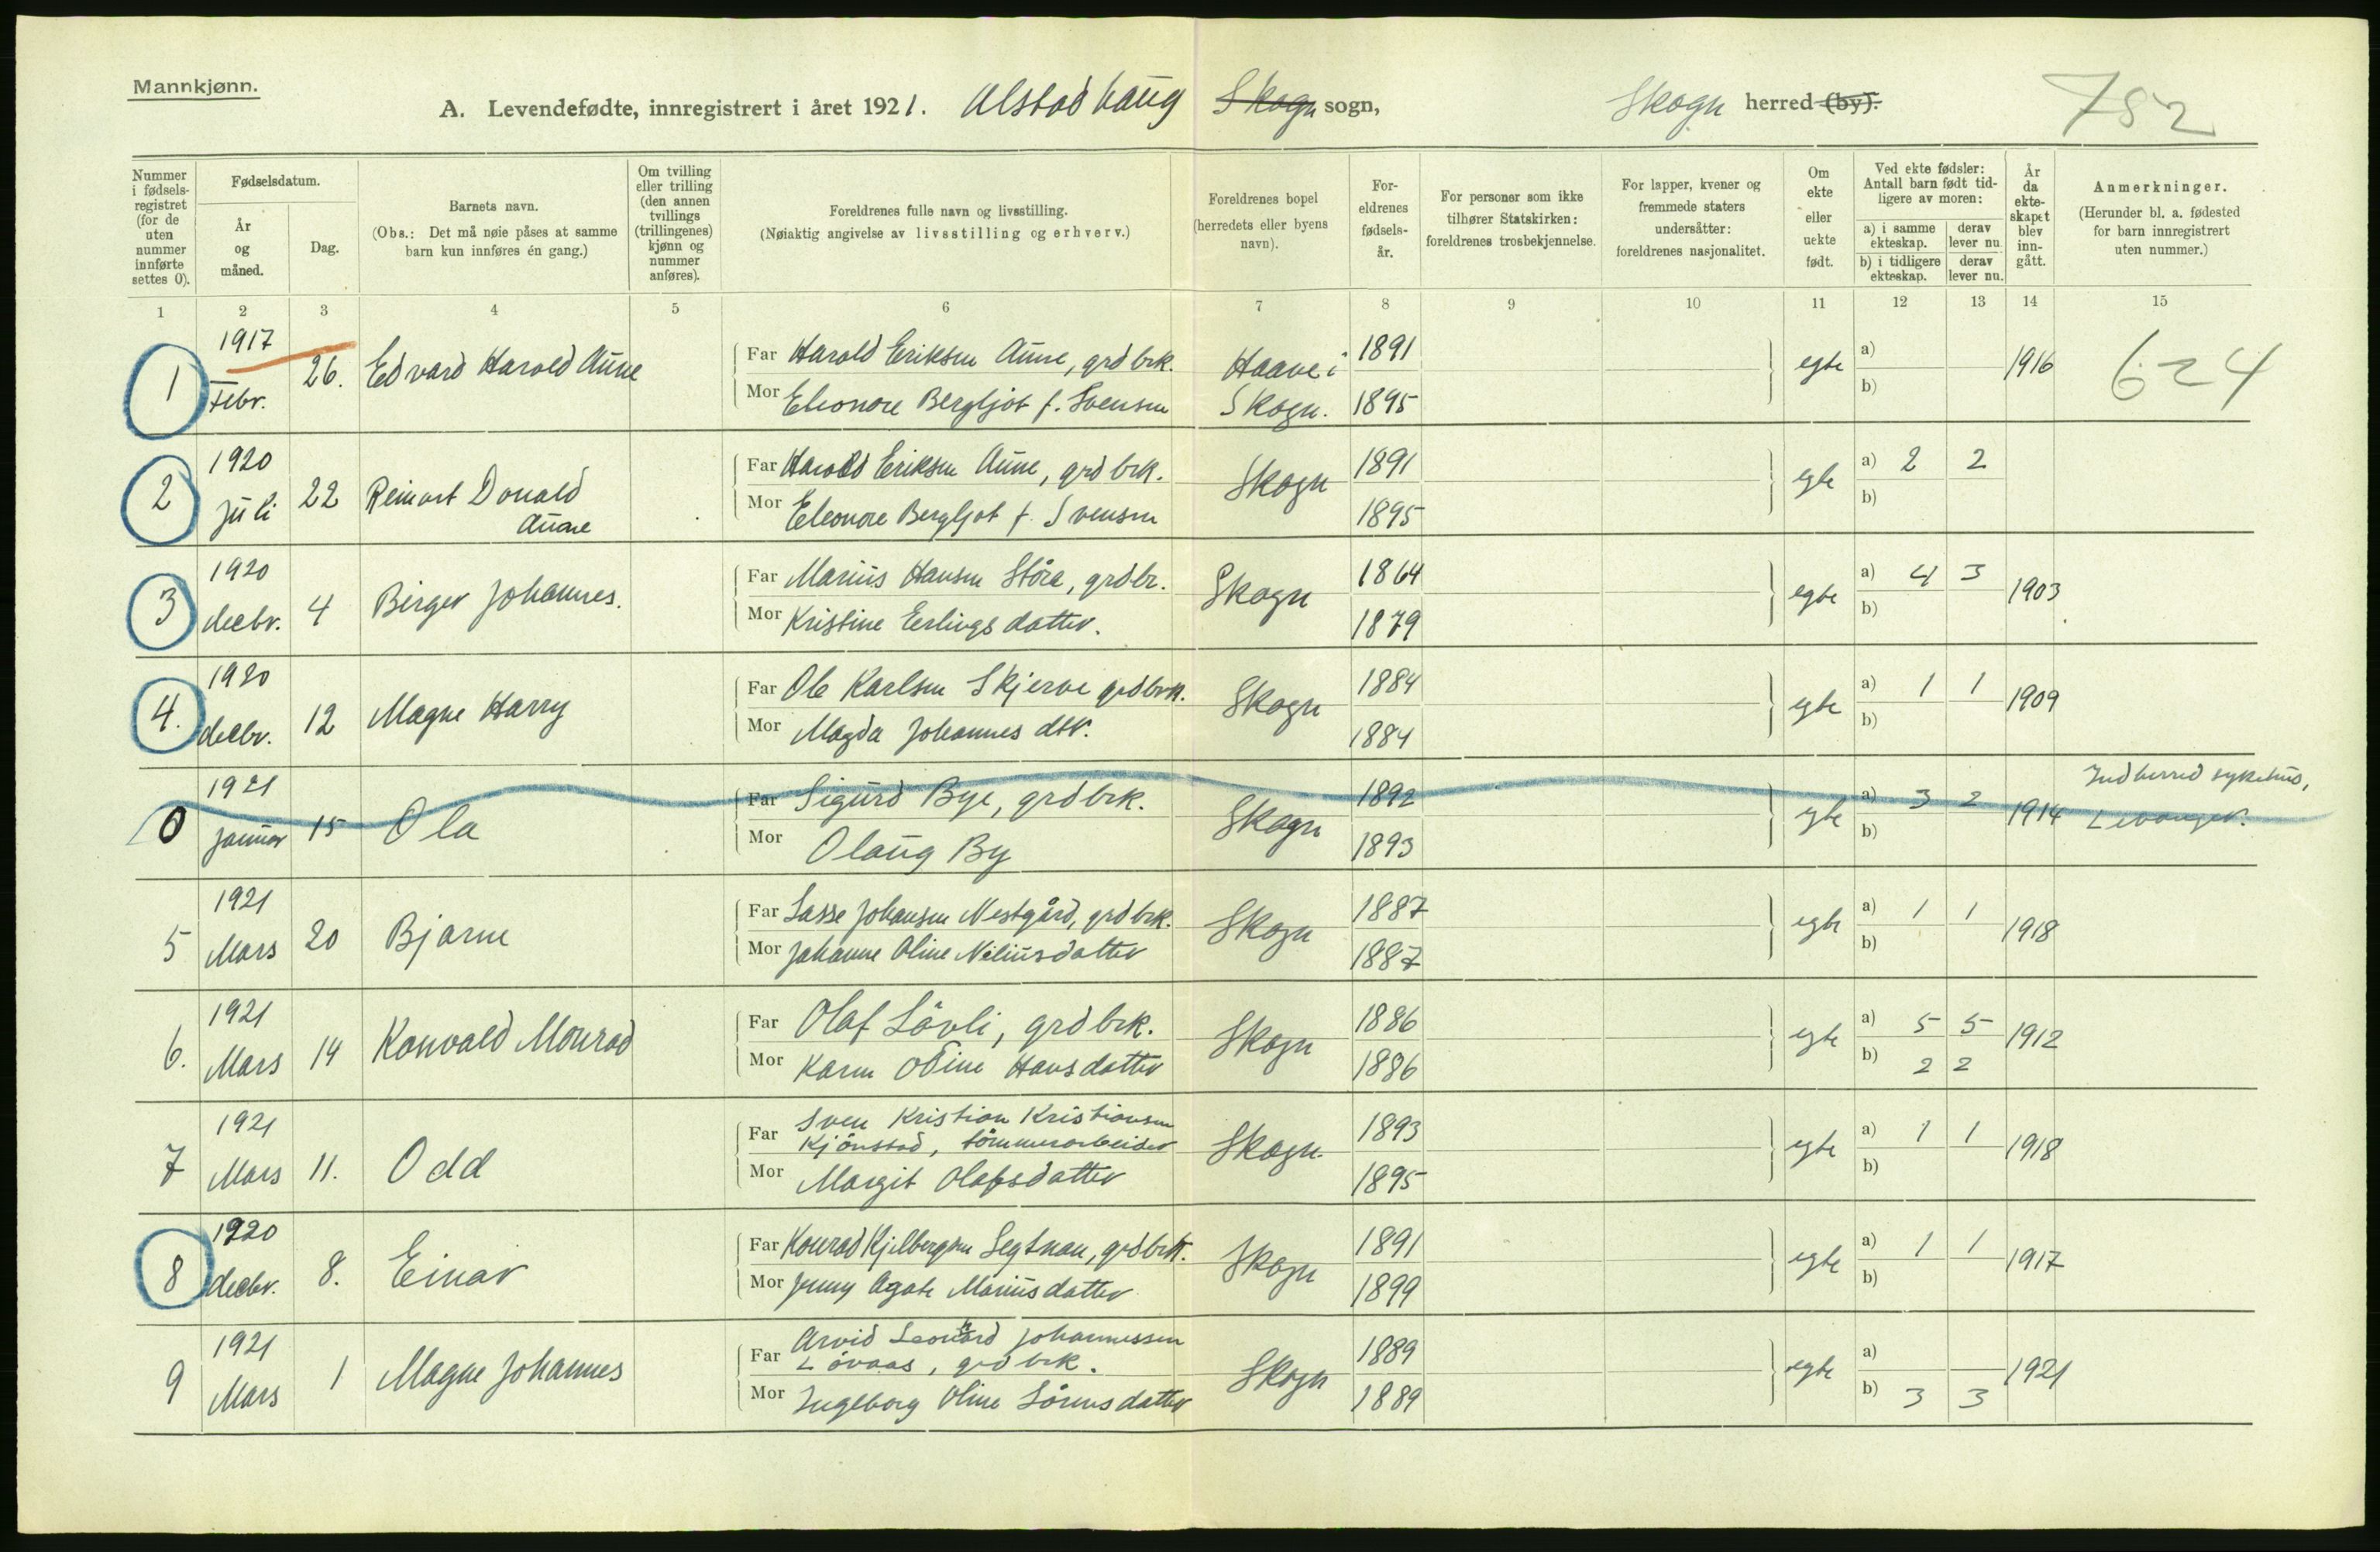 Mannkjønn.
A. Levendefødte, innregistrert i året 1921. Alstadhaug Skogn sogn, Skogn herred (by). 782
Nummer i fødsels-registret (for de uten nummer innførte settes 0).
Fødselsdatum.
År og måned.
Dag.
Barnets navn.
(Obs.: Det må nøie påses at samme barn kun innføres én gang.)
Om tvilling eller trilling (den annen tvillings (trillingenes) kjønn og nummer anføres).
Foreldrenes fulle navn og livsstilling.
(Nøiaktig angivelse av livsstilling og erhverv.)
Foreldrenes bopel (herredets eller byens navn).
For-eldrenes fødsels-år.
For personer som ikke tilhører Statskirken: foreldrenes trosbekjennelse.
For lapper, kvener og fremmede staters undersåtter: foreldrenes nasjonalitet.
Om ekte eller uekte født.
Ved ekte fødsler: Antall barn født tid-ligere av moren:
a) i samme ekteskap. derav lever nu
b) i tidligere ekteskap. derav lever nu.
År da ekte-skapet blev inn-gått.
Anmerkninger.
(Herunder bl. a. fødested for barn innregistrert uten nummer.)
1 2 3 4 5 6 7 8 9 10 11 12 13 14 15
1 1917 Febr. 26. Edvard Harold Aune
Far Harald Eriksen Aune, grdbrk. Haave i 1891 egte a) 1916 624
Mor Eleonore Bergljot f. Svensen Skogn. 1895 b)
2 1920 Juli 22 Reinart Donald Aune
Far Harald Eriksen Aune, grdbrk. Skogn 1891 egte a) 2 2
Mor Eleonore Bergljot f. Svensen 1895 b)
3 1920 decbr. 4 Birger Johannes.
Far Marius Hansen Støre, grdbr. Skogn 1864 egte a) 4 3 1903
Mor Kristine Erlingsdatter. 1879 b)
4. 1920 decbr. 12 Magne Harry
Far Ole Karlsen Skjerve grdbrk. Skogn 1884 egte a) 1 1 1909
Mor Magda Johannes dtr. 1884 b)
0 1921 januar 15 Ola
Far Sigurd Bye, grdbrk. Skogn 1892 egte a) 3 2 1914 Indherred sykehus,
Mor Olaug By 1893 b) Levanger.
5 1921 Mars 20 Bjarne
Far Lasse Johansen Nestgård, grdbrk. Skogn 1887 egte a) 1 1 1918
Mor Johanne Oline Niliusdatter 1887 b)
6. 1921 Mars 14 Konvald Monrad
Far Olaf Løvli, grdbrk. Skogn 1886 egte a) 5 5 1912
Mor Karen Odine Hansdatter 1886 b) 2 2
7 1921 Mars 11. Odd
Far Sven Kristian Kristiansen
Kjønstad, tømmerarbeider Skogn 1893 egte a) 1 1 1918
Mor Margit Olafsdatter 1895 b)
8 1920 decbr. 8. Einar
Far Konrad Kjelbergsen Segtnan, grdbrk. Skogn 1891 egte a) 1 1 1917
Mor Jenny Agate Mariusdatter 1899 b)
9 1921 Mars 1 Magne Johannes
Far Arvid Leonard Johannessen
Løvaas, grdbrk. Skogn 1889 egte a) 1921
Mor Ingeborg Oline Sørensdatter 1889 b) 3 3